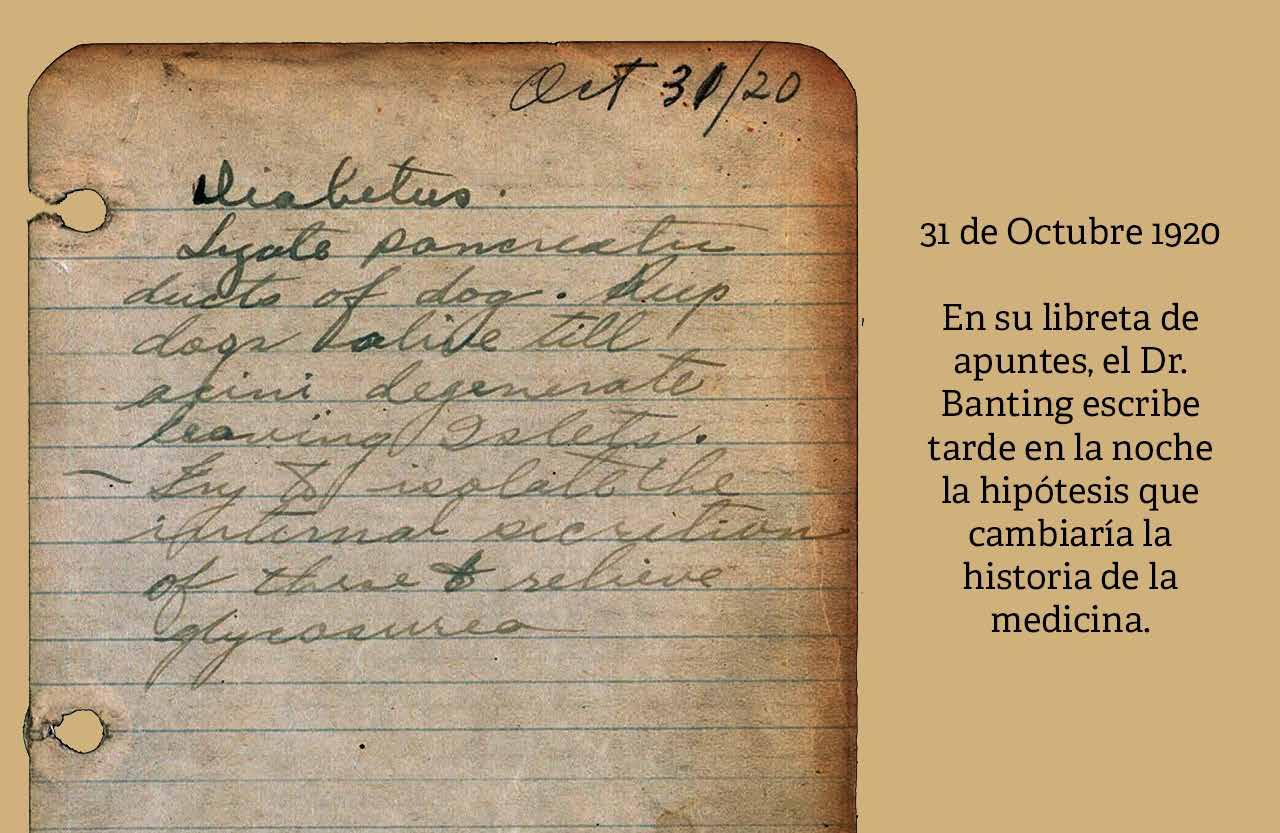 Oct 31/20
Diabetus.
Ligate pancreatic
ducts of dog. Keep
dogs alive till
acini degenerate
leaving Islets.
Try to isolate the
internal secretion
of these & relieve
glycosurea
31 de Octubre 1920
En su libreta de
apuntes, el Dr.
Banting escribe
tarde en la noche
la hipótesis que
cambiaría la
historia de la
medicina.